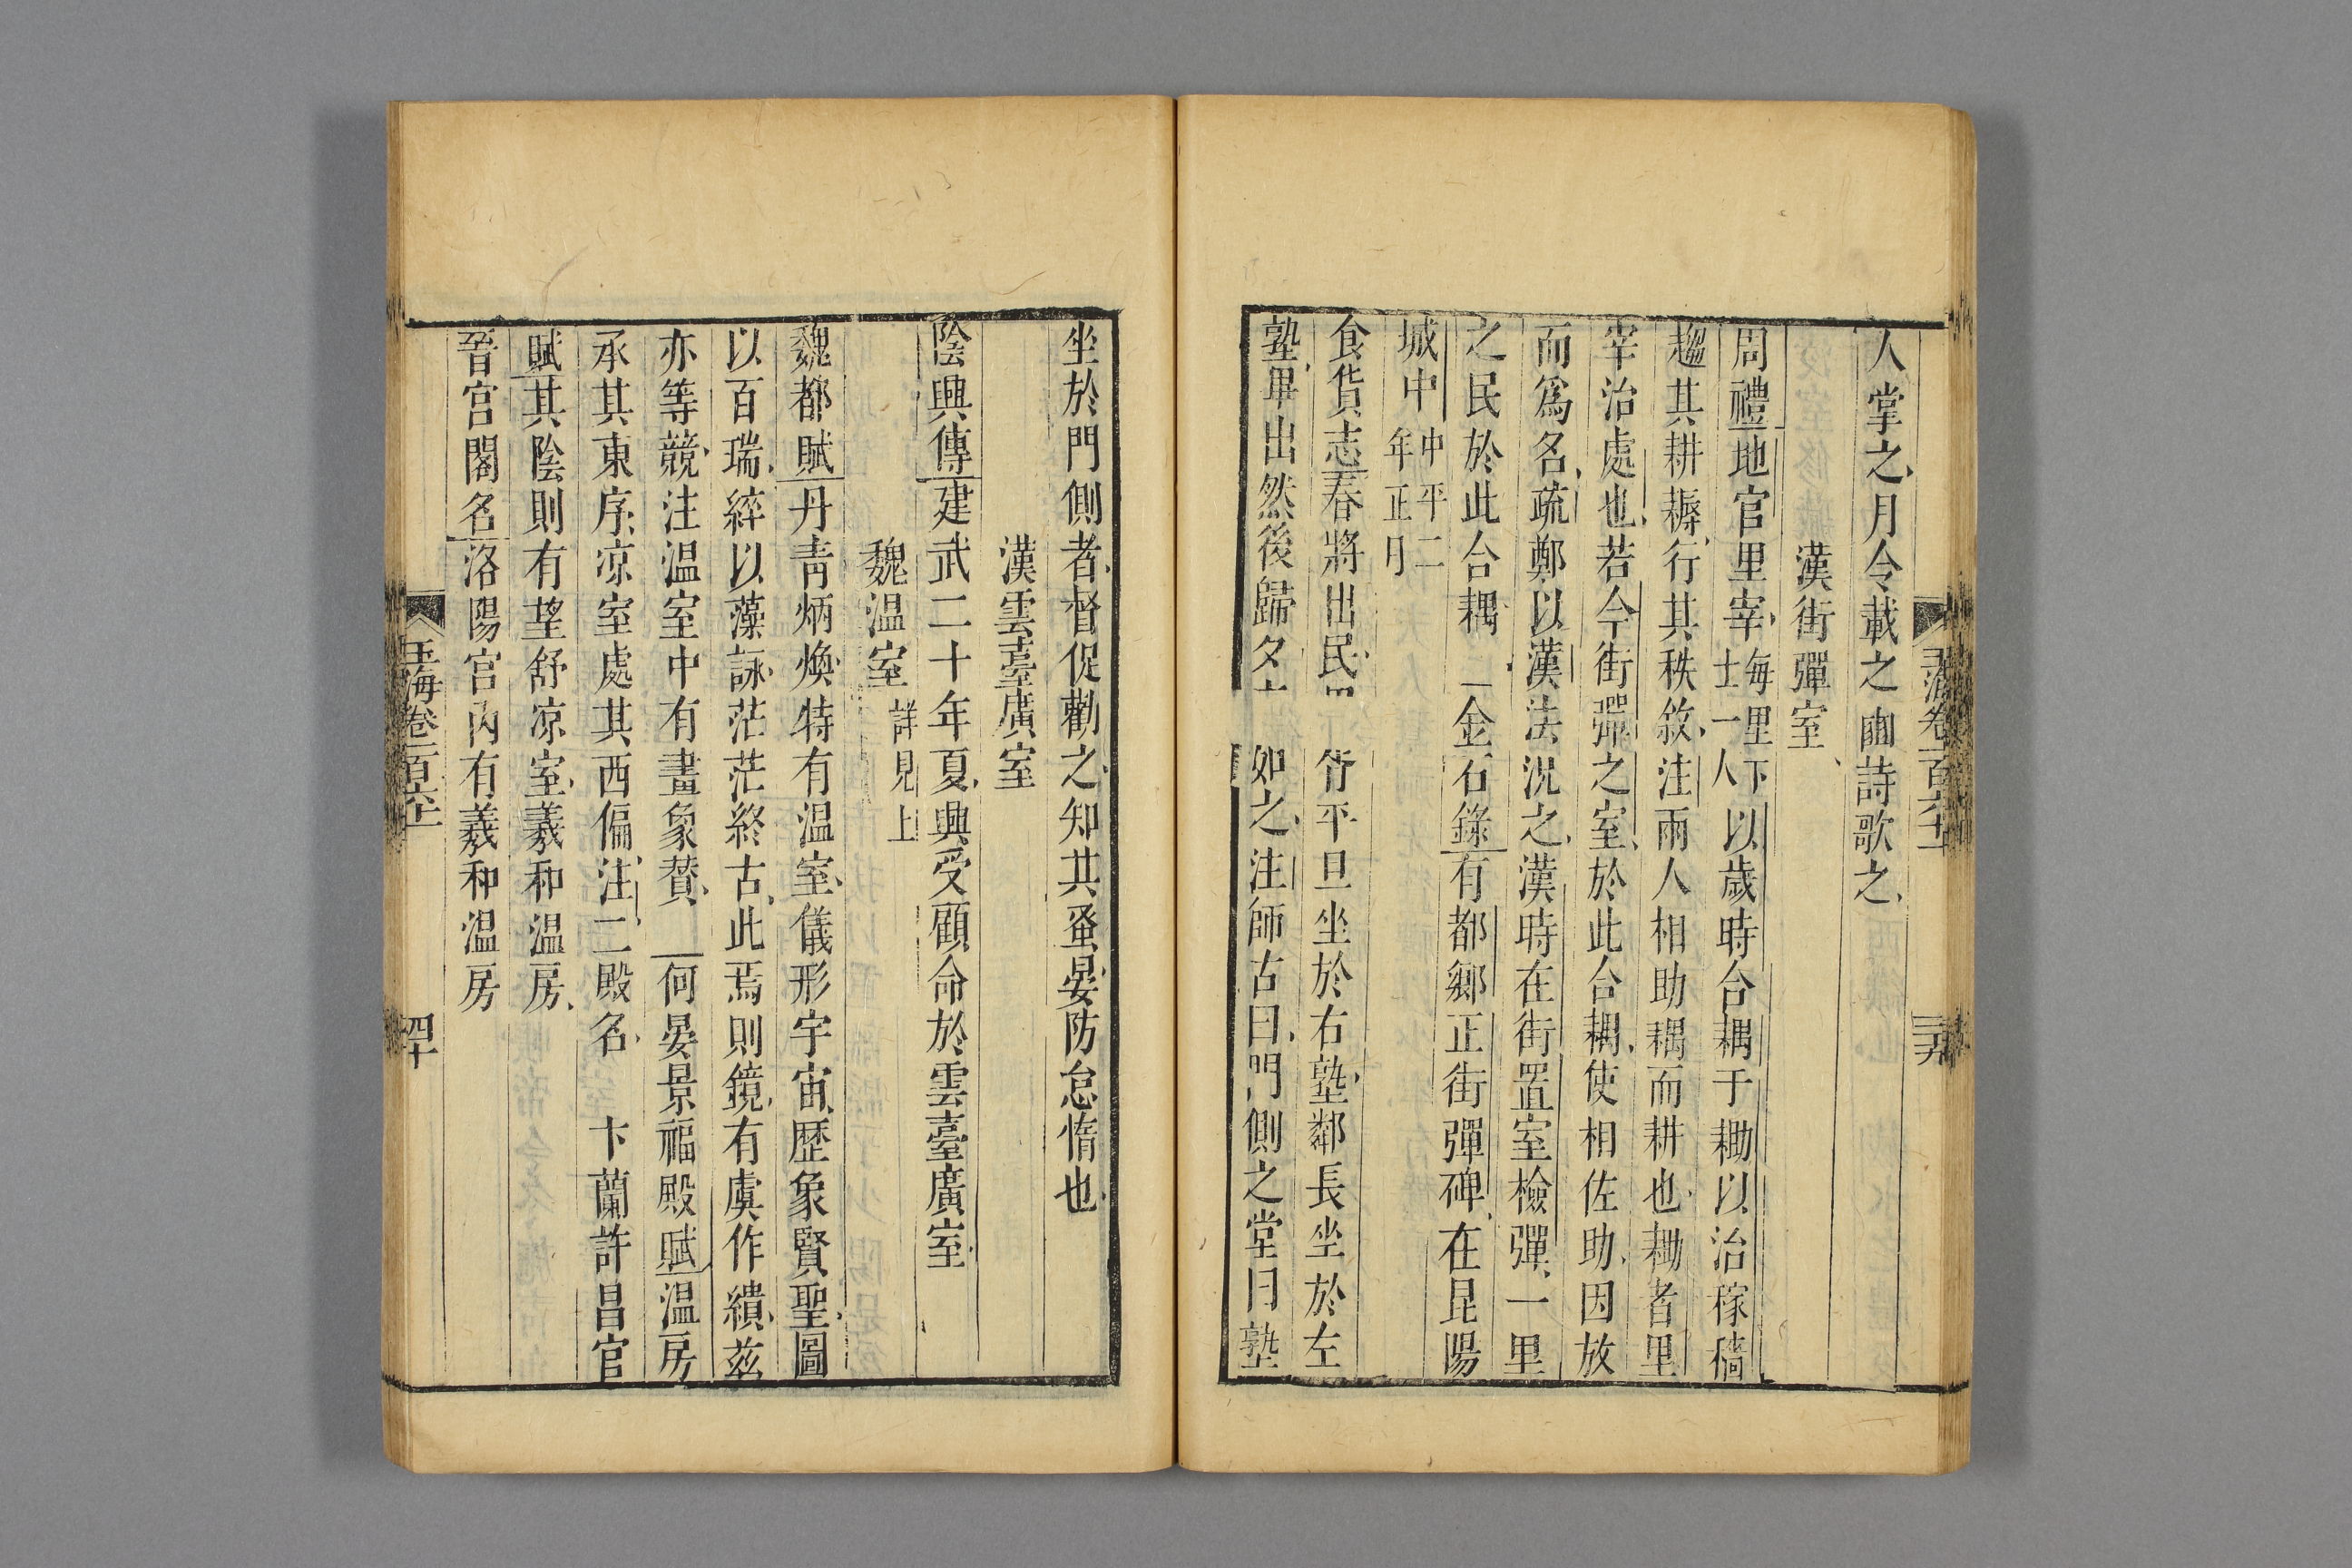 人掌之月令載之豳詩歌之
漢街彈室
周禮地官里宰每里下士一人以歲時合耦于耡以治稼穡
趨其耕耨行其秩敘注兩人相助耦而耕也耡者里
宰治處也若今街彈之室於此合耦使相佐助因放
而爲名疏鄭以漢法況之漢時在街置室檢彈一里
之民於此合耦 金石錄有都鄉正街彈碑在昆陽
城中中平二年正月
食貨志春將出民 胥平旦坐於右塾鄰長坐於左
塾畢出然後歸夕 如之注師古曰門側之堂曰塾
坐於門側者督促勸之知其蚤晏防怠惰也
漢雲臺廣室
陰興傳建武二十年夏興受顧命於雲臺廣室
魏温室詳見上
魏都賦丹青炳煥特有温室儀形宇宙歷象賢聖圖
以百瑞綷以藻詠茫茫終古此焉則鏡有虞作繢茲
亦等競注温室中有畫象贊 何晏景福殿賦温房
承其東序凉室處其西偏注二殿名 卞蘭許昌宮
賦其陰則有望舒凉室羲和温房
晉宮閣名洛陽宮內有羲和温房
玉海卷一百六十一
三十九
玉海卷一百六十一
四十